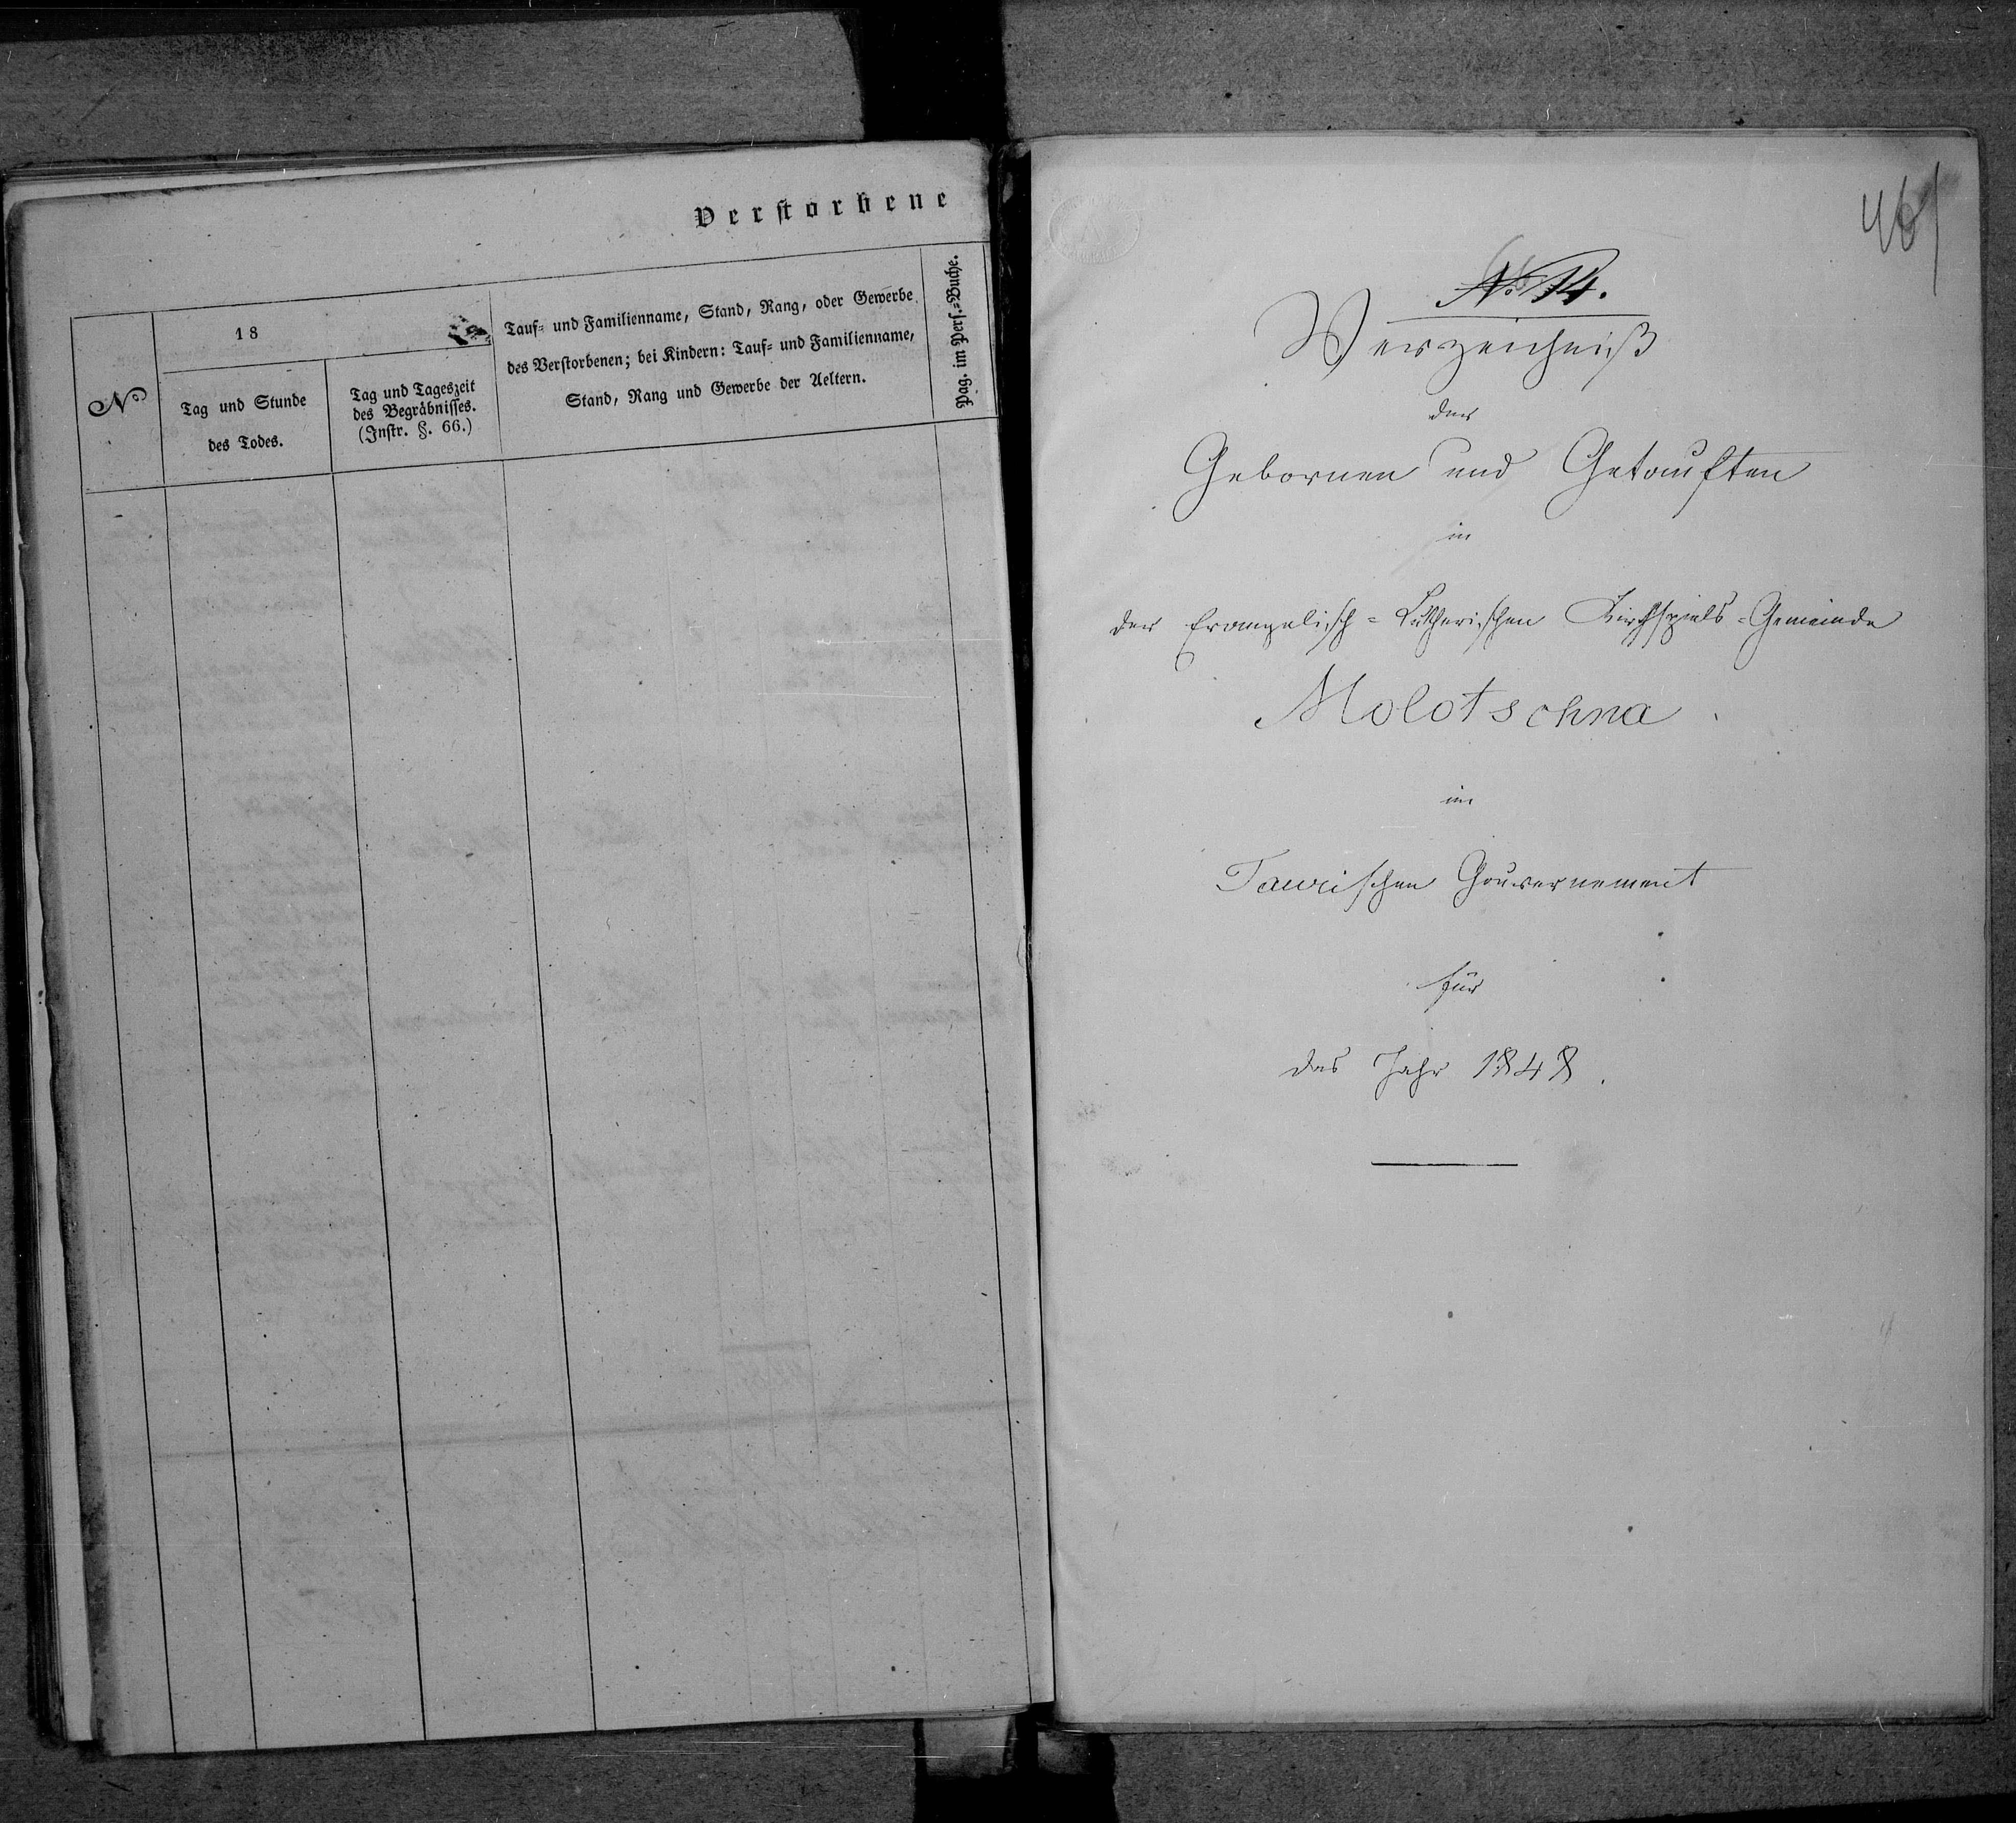 Verstorbene
№
18
Tag und Stunde
des Todes.
Tag und Tageszeit
des Begräbnisses.
(Instr. §. 66.)
Tauf- und Familienname, Stand, Rang, oder Gewerbe
des Verstorbenen; bei Kindern: Tauf- und Familienname,
Stand, Rang und Gewerbe der Aeltern.
Pag. im Pers.-Buche.
461
No 14.
Verzeichniß
der
Gebornen und Getauften
in
der Evangelisch-Lutherischen Kirchspiels-Gemeinde
Molotschna
im
Taurischen Gouvernement
für
das Jahr 1848.